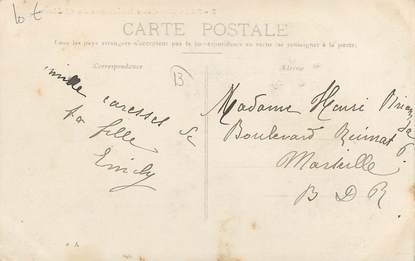 10 €
CARTE POSTALE
Tous les pays étrangers n'acceptent pas la correspondance au recto (se renseigner à la poste)
Correspondance
13
Adresse
mille caresses de
ta fille
Emily
Madame Henri
Boulevard
Marseille
B D R